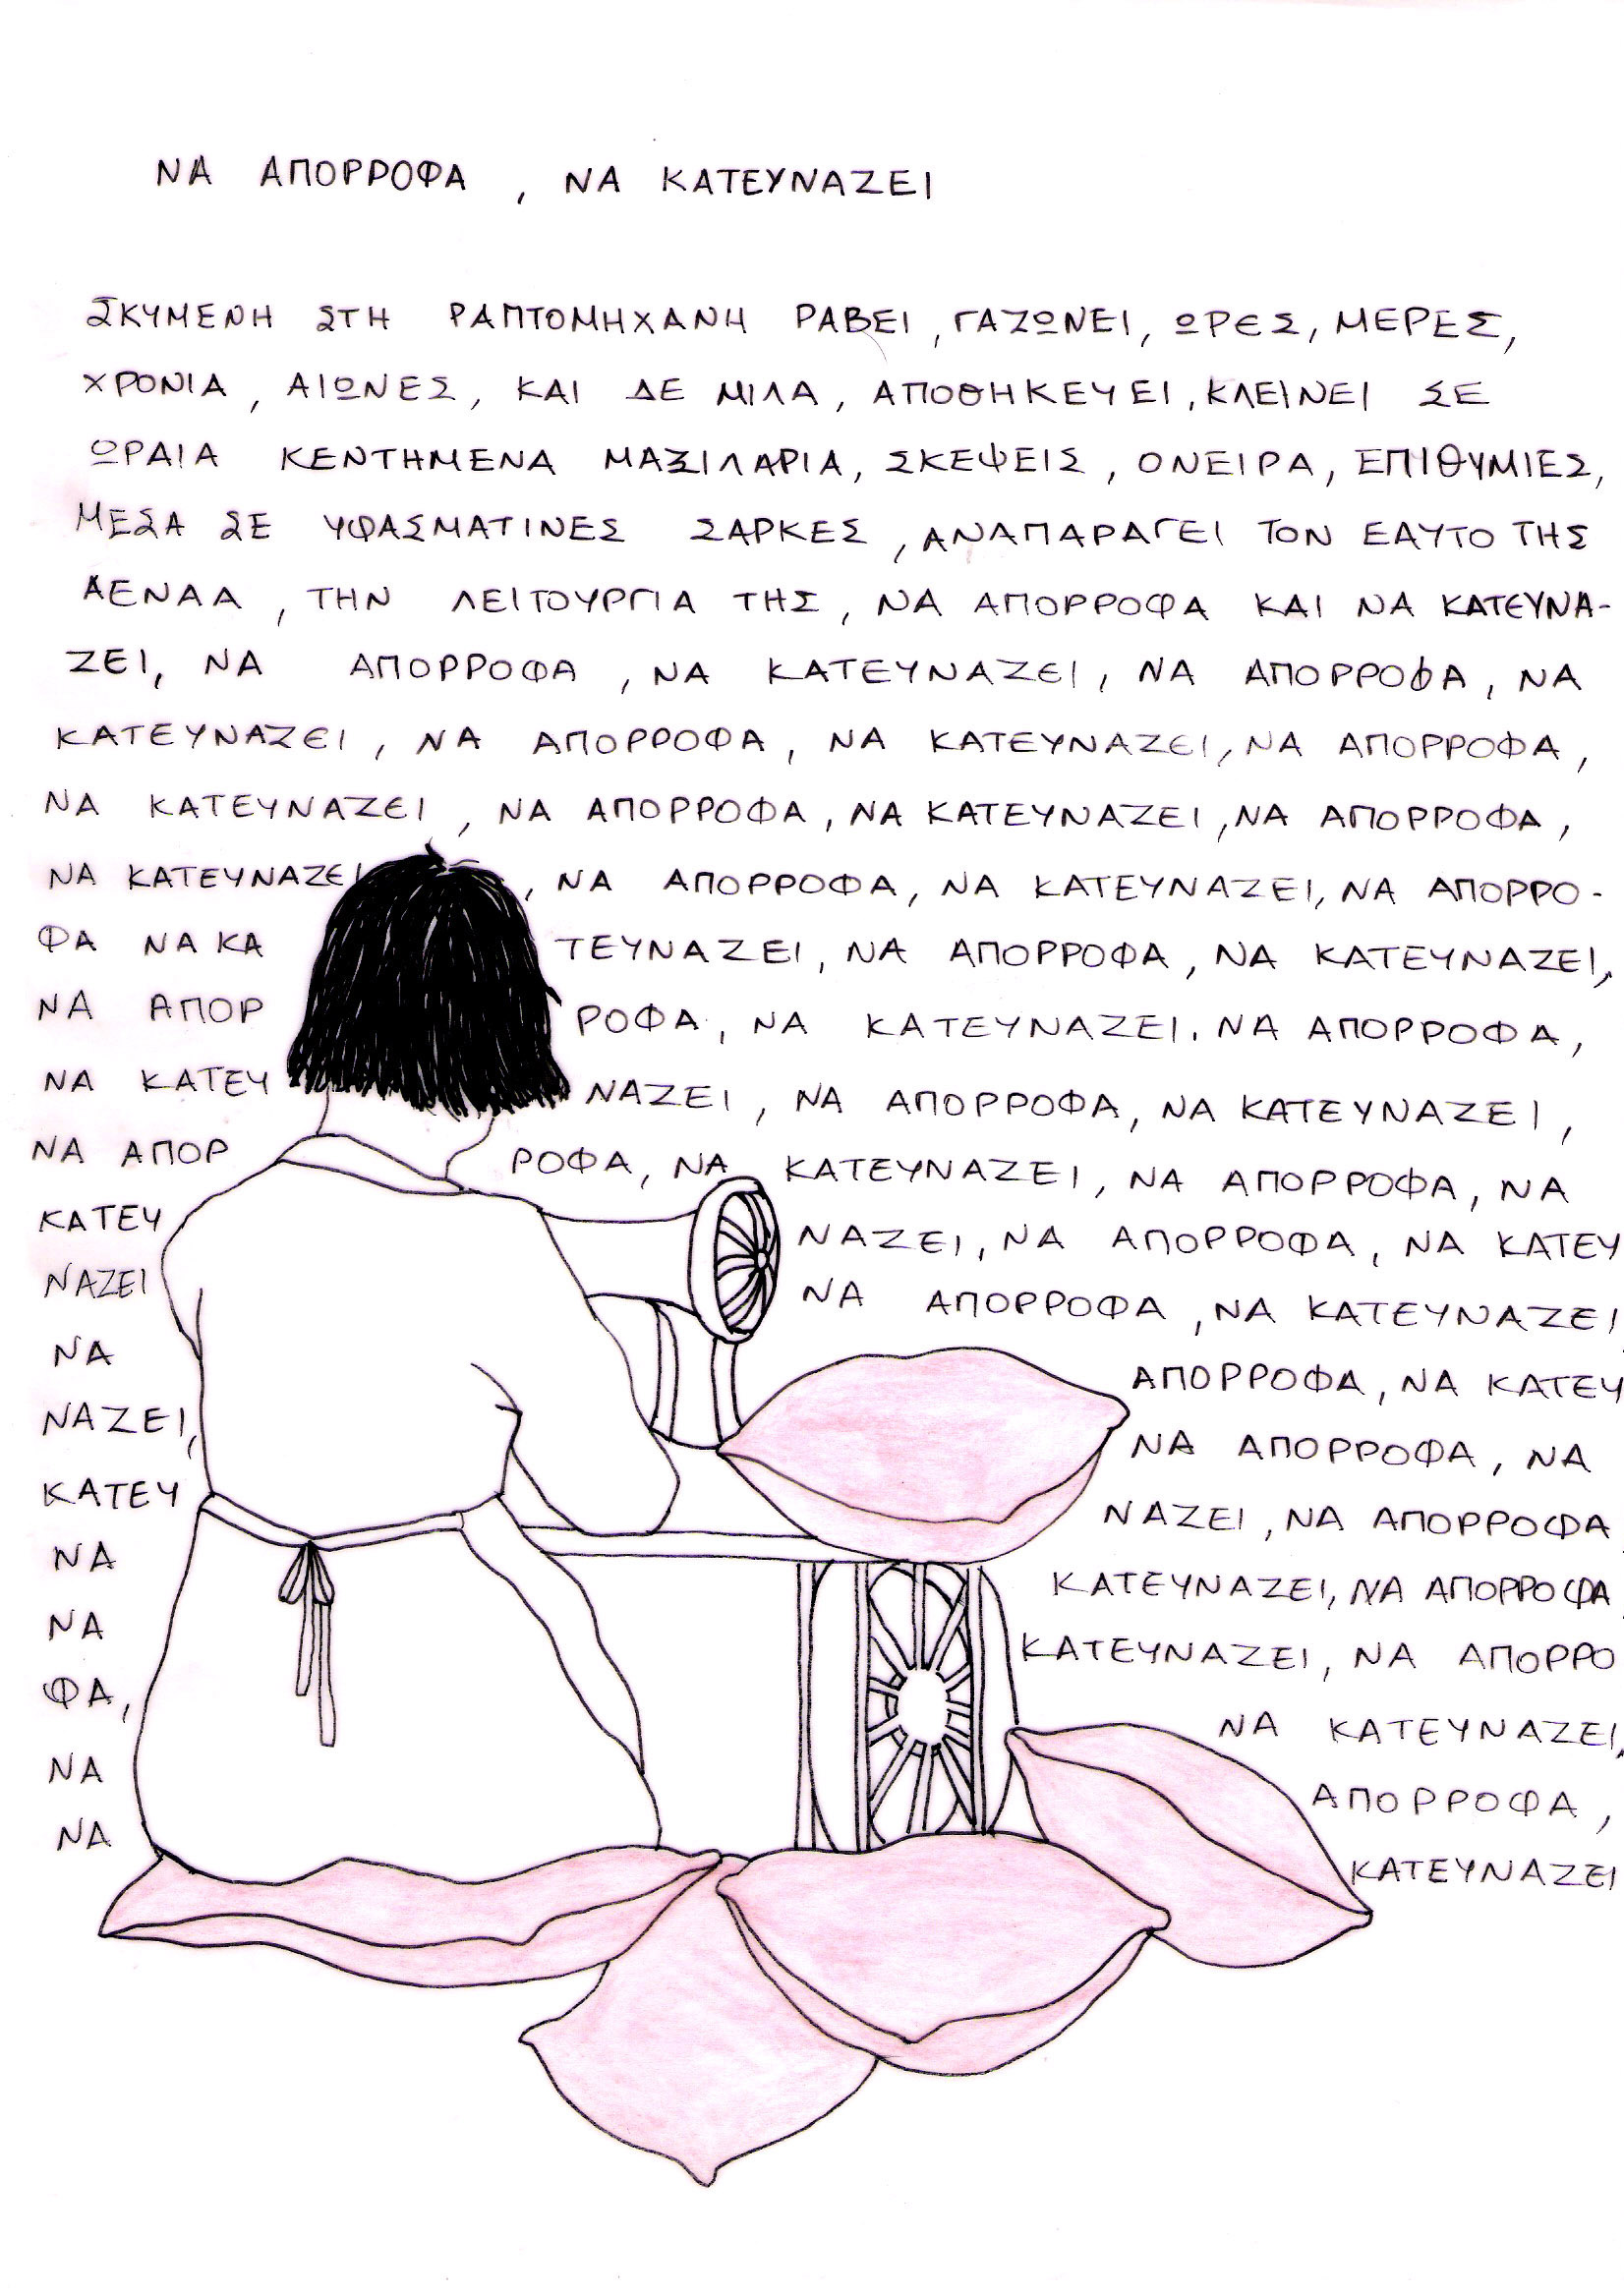 ΝΑ ΑΠΟΡΡΟΦΑ , ΝΑ ΚΑΤΕΥΝΑΖΕΙ
ΣΚΥΜΕΝΗ ΣΤΗ ΡΑΠΤΟΜΗΧΑΝΗ ΡΑΒΕΙ , ΓΑΖΩΝΕΙ , ΩΡΕΣ, ΜΕΡΕΣ,
ΧΡΟΝΙΑ , ΑΙΩΝΕΣ, ΚΑΙ ΔΕ ΜΙΛΑ, ΑΠΟΘΗΚΕΥΕΙ, ΚΛΕΙΝΕΙ ΣΕ
ΩΡΑΙΑ ΚΕΝΤΗΜΕΝΑ ΜΑΞΙΛΑΡΙΑ, ΣΚΕΨΕΙΣ , ΟΝΕΙΡΑ, ΕΠΙΘΥΜΙΕΣ,
ΜΕΣΑ ΣΕ ΥΦΑΣΜΑΤΙΝΕΣ ΣΑΡΚΕΣ , ΑΝΑΠΑΡΑΓΕΙ ΤΟΝ ΕΑΥΤΟ ΤΗΣ
ΑΕΝΑΑ , ΤΗΝ ΛΕΙΤΟΥΡΓΙΑ ΤΗΣ , ΝΑ ΑΠΟΡΡΟΦΑ ΚΑΙ ΝΑ ΚΑΤΕΥΝΑ-
ΖΕΙ, ΝΑ ΑΠΟΡΡΟΦΑ , ΝΑ ΚΑΤΕΥΝΑΖΕΙ, ΝΑ ΑΠΟΡΡΟΦΑ, ΝΑ
ΚΑΤΕΥΝΑΖΕΙ , ΝΑ ΑΠΟΡΡΟΦΑ , ΝΑ ΚΑΤΕΥΝΑΖΕΙ, ΝΑ ΑΠΟΡΡΟΦΑ ,
ΝΑ ΚΑΤΕΥΝΑΖΕΙ , ΝΑ ΑΠΟΡΡΟΦΑ , ΝΑ ΚΑΤΕΥΝΑΖΕΙ ,ΝΑ ΑΠΟΡΡΟΦΑ ,
ΝΑ ΚΑΤΕΥΝΑΖΕΙ , ΝΑ ΑΠΟΡΡΟΦΑ, ΝΑ ΚΑΤΕΥΝΑΖΕΙ, ΝΑ ΑΠΟΡΡΟ-
ΦΑ ΝΑ ΚΑ ΤΕΥΝΑΖΕΙ , ΝΑ ΑΠΟΡΡΟΦΑ , ΝΑ ΚΑΤΕΥΝΑΖΕΙ,
ΝΑ ΑΠΟΡ ΡΟΦΑ , ΝΑ ΚΑΤΕΥΝΑΖΕΙ. ΝΑ ΑΠΟΡΡΟΦΑ ,
ΝΑ ΚΑΤΕΥ ΝΑΖΕΙ , ΝΑ ΑΠΟΡΡΟΦΑ, ΝΑ ΚΑΤΕΥΝΑΖΕΙ ,
ΝΑ ΑΠΟΡ ΡΟΦΑ, ΝΑ ΚΑΤΕΥΝΑΖΕΙ , ΝΑ ΑΠΟΡΡΟΦΑ, ΝΑ
ΚΑΤΕΥ ΝΑΖΕΙ , ΝΑ ΑΠΟΡΡΟΦΑ , ΝΑ ΚΑΤΕΥ
ΝΑΖΕΙ ΝΑ ΑΠΟΡΡΟΦΑ , ΝΑ ΚΑΤΕΥΝΑΖΕΙ
ΝΑ ΑΠΟΡΡΟΦΑ , ΝΑ ΚΑΤΕΥ
ΝΑΖΕΙ, ΝΑ ΑΠΟΡΡΟΦΑ , ΝΑ
ΚΑΤΕΥ ΝΑΖΕΙ , ΝΑ ΑΠΟΡΡΟΦΑ
ΝΑ ΚΑΤΕΥΝΑΖΕΙ, ΝΑ ΑΠΟΡΡΟΦΑ
ΝΑ ΚΑΤΕΥΝΑΖΕΙ , ΝΑ ΑΠΟΡΡΟ
ΦΑ, ΝΑ ΚΑΤΕΥΝΑΖΕΙ,
ΝΑ ΑΠΟΡΡΟΦΑ ,
ΝΑ ΚΑΤΕΥΝΑΖΕΙ